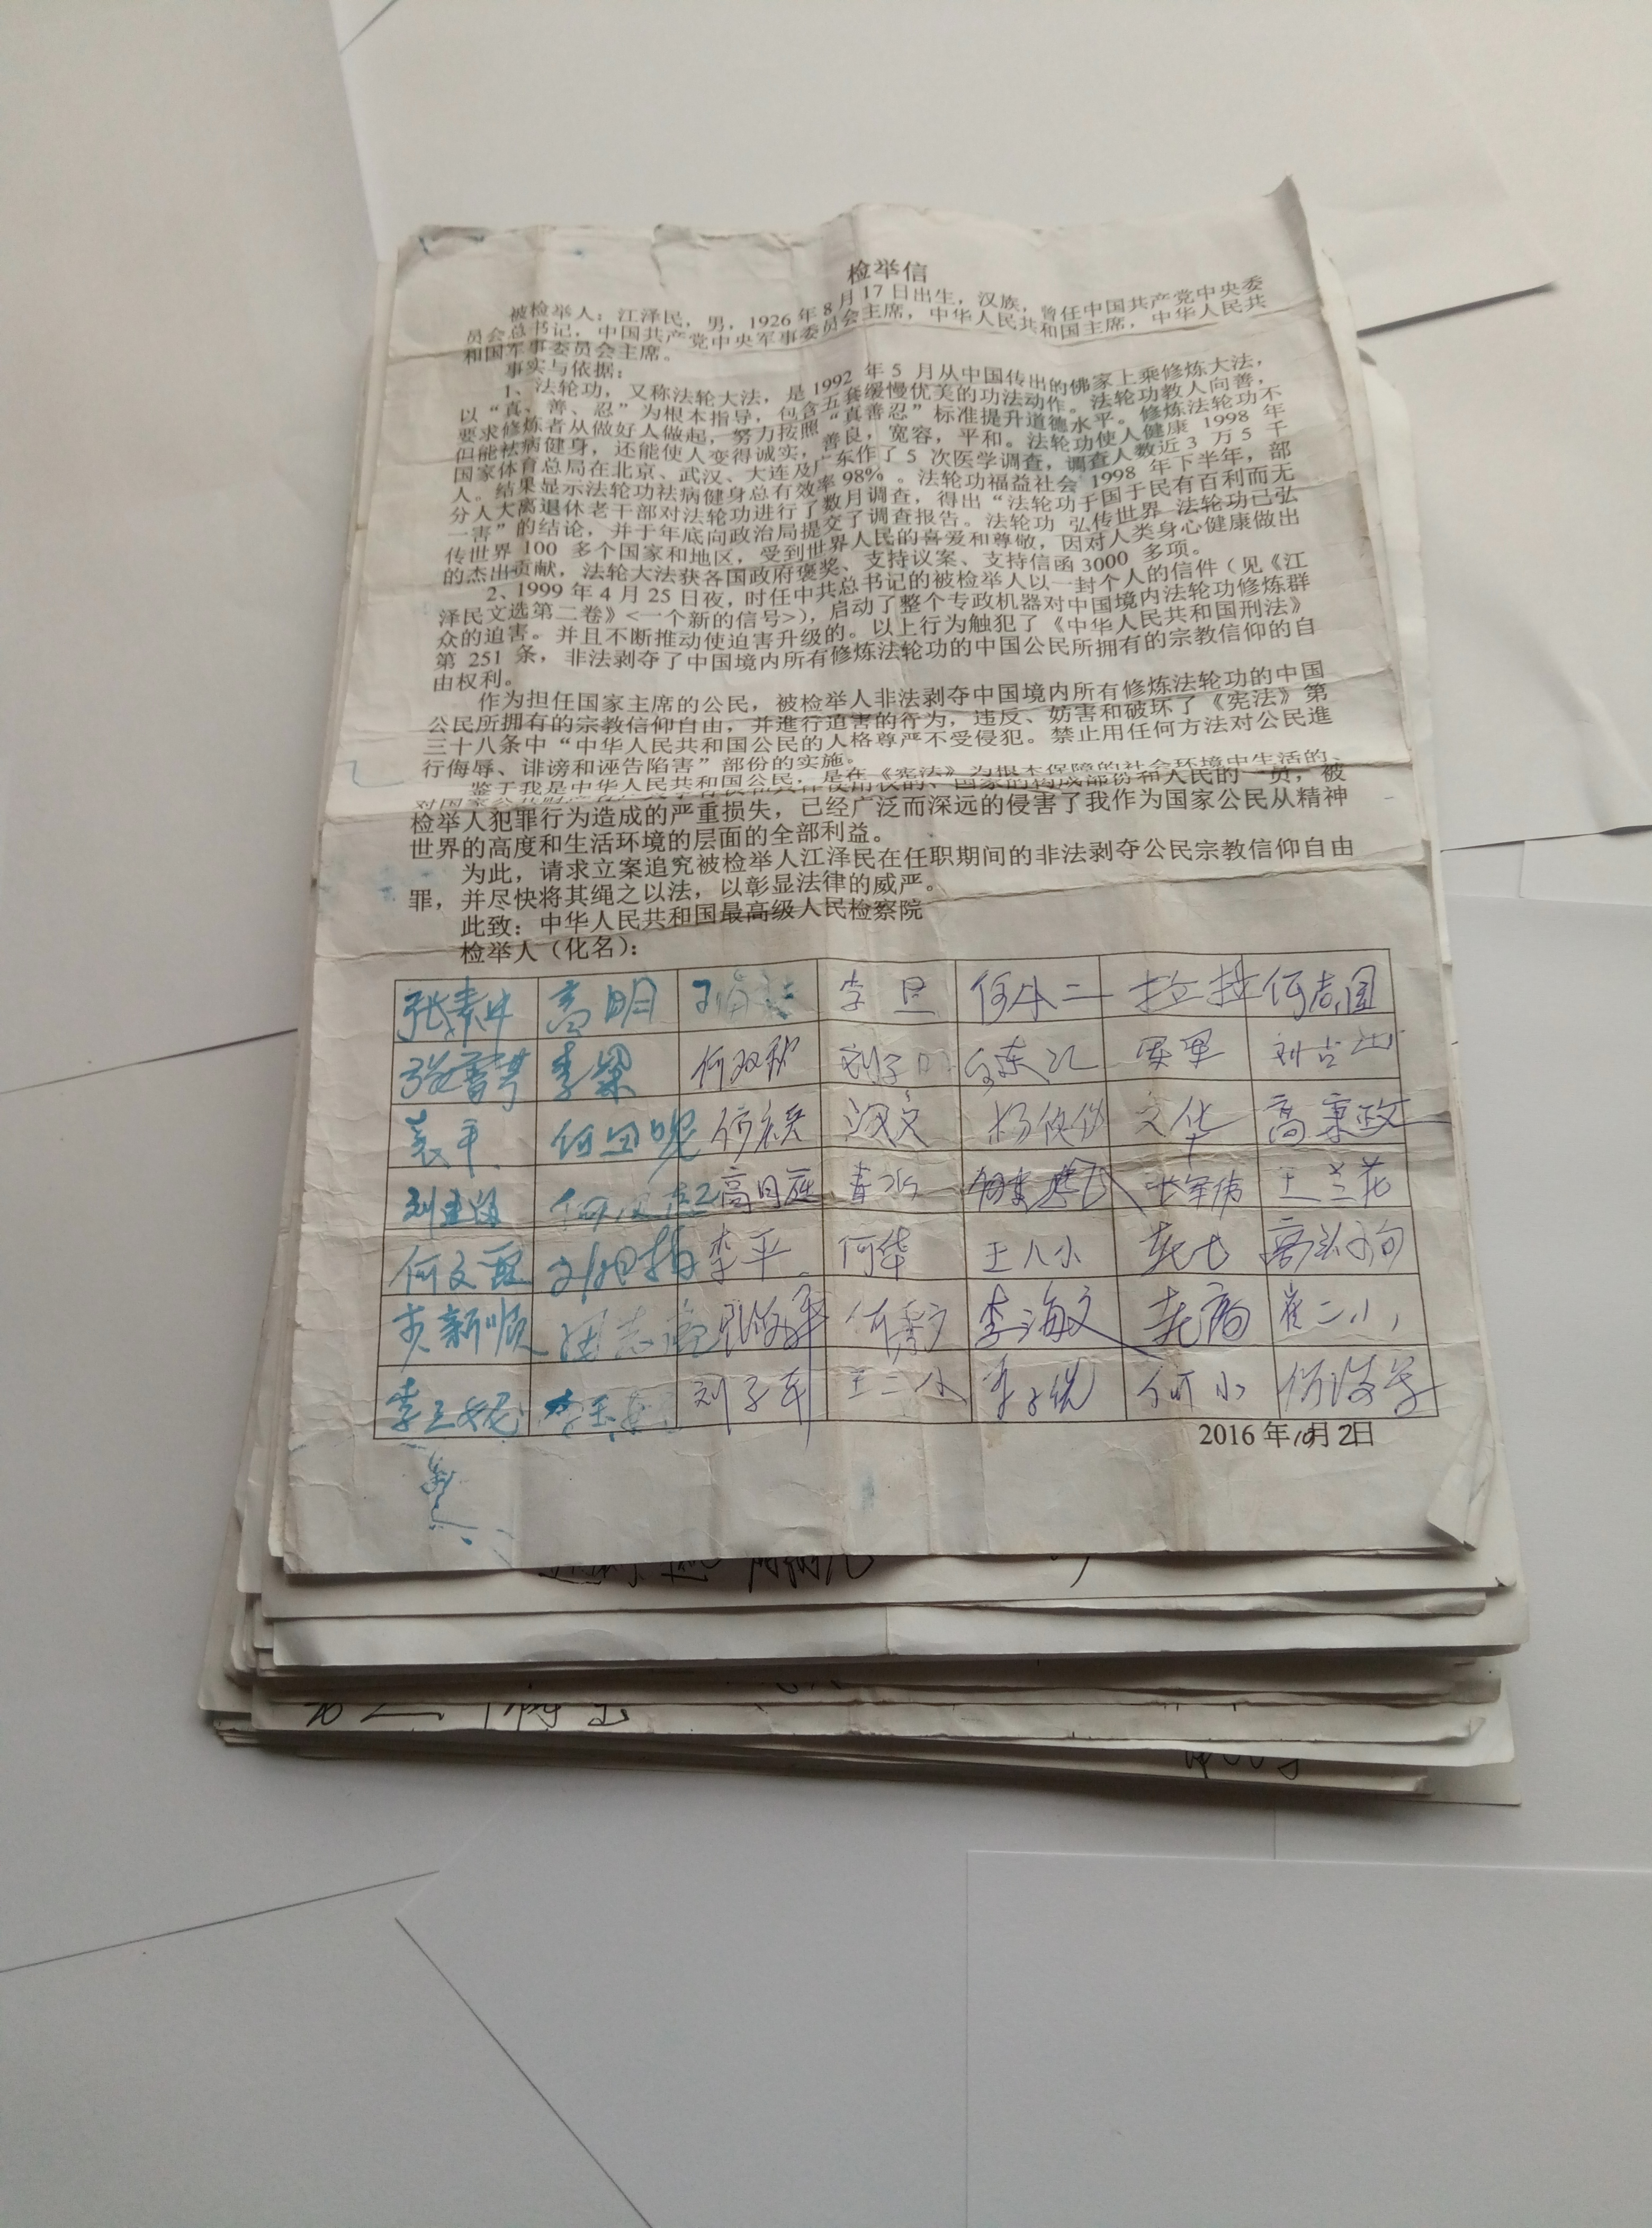 检举信
被检举人：江泽民，男，1926年8月17日出生，汉族，曾任中国共产党中央委
员会总书记，中国共产党中央军事委员会主席，中华人民共和国主席，中华人民共
和国军事委员会主席。
事实与依据：
1、法轮功，又称法轮大法，是1992 年5 月从中国传出的佛家上乘修炼大法，
以“真、善、忍”为根本指导，包含五套缓慢优美的功法动作。法轮功教人向善，
要求修炼者从做好人做起，努力按照“真善忍”标准提升道德水平。修炼法轮功不
但能祛病健身，还能使人变得诚实，善良，宽容，平和。法轮功使人健康 1998 年
国家体育总局在北京、武汉、大连及广东作了 5 次医学调查，调查人数近 3 万 5 千
人。结果显示法轮功祛病健身总有效率 98% 。法轮功福益社会 1998 年下半年，部
分人大离退休老干部对法轮功进行了数月调查，得出“法轮功于国于民有百利而无
一害”的结论，并于年底向政治局提交了调查报告。法轮功 弘传世界 法轮功已弘
传世界 100 多个国家和地区，受到世界人民的喜爱和尊敬，因对人类身心健康做出
的杰出贡献，法轮大法获各国政府褒奖、支持议案、支持信函 3000 多项。
2、1999 年 4 月 25 日夜，时任中共总书记的被检举人以一封个人的信件（见《江
泽民文选第二卷》<一个新的信号>），启动了整个专政机器对中国境内法轮功修炼群
众的迫害。并且不断推动使迫害升级的。以上行为触犯了《中华人民共和国刑法》
第 251 条，非法剥夺了中国境内所有修炼法轮功的中国公民所拥有的宗教信仰的自
由权利。
作为担任国家主席的公民，被检举人非法剥夺中国境内所有修炼法轮功的中国
公民所拥有的宗教信仰自由，并進行迫害的行为，违反、妨害和破坏了《宪法》第
三十八条中“中华人民共和国公民的人格尊严不受侵犯。禁止用任何方法对公民進
行侮辱、诽谤和诬告陷害”部份的实施。
鉴于我是中华人民共和国公民；是在《宪法》为根本保障的社会环境中生活的、
国家的构成部份和人民的一员，被
检举人犯罪行为造成的严重损失，已经广泛而深远的侵害了我作为国家公民从精神
世界的高度和生活环境的层面的全部利益。
为此，请求立案追究被检举人江泽民在任职期间的非法剥夺公民宗教信仰自由
罪，并尽快将其绳之以法，以彰显法律的威严。
此致：中华人民共和国最高级人民检察院
检举人（化名）：
张素中 高明 李旦 何小二 拉拉 何志国
李梁 何双秋
袁平 何田妮 文华 高秉政
王兰花
李平 何华 王人小
黄新顺 李海文 崔二小
李三妮 刘子军 王二小 何小
2016 年10月2日